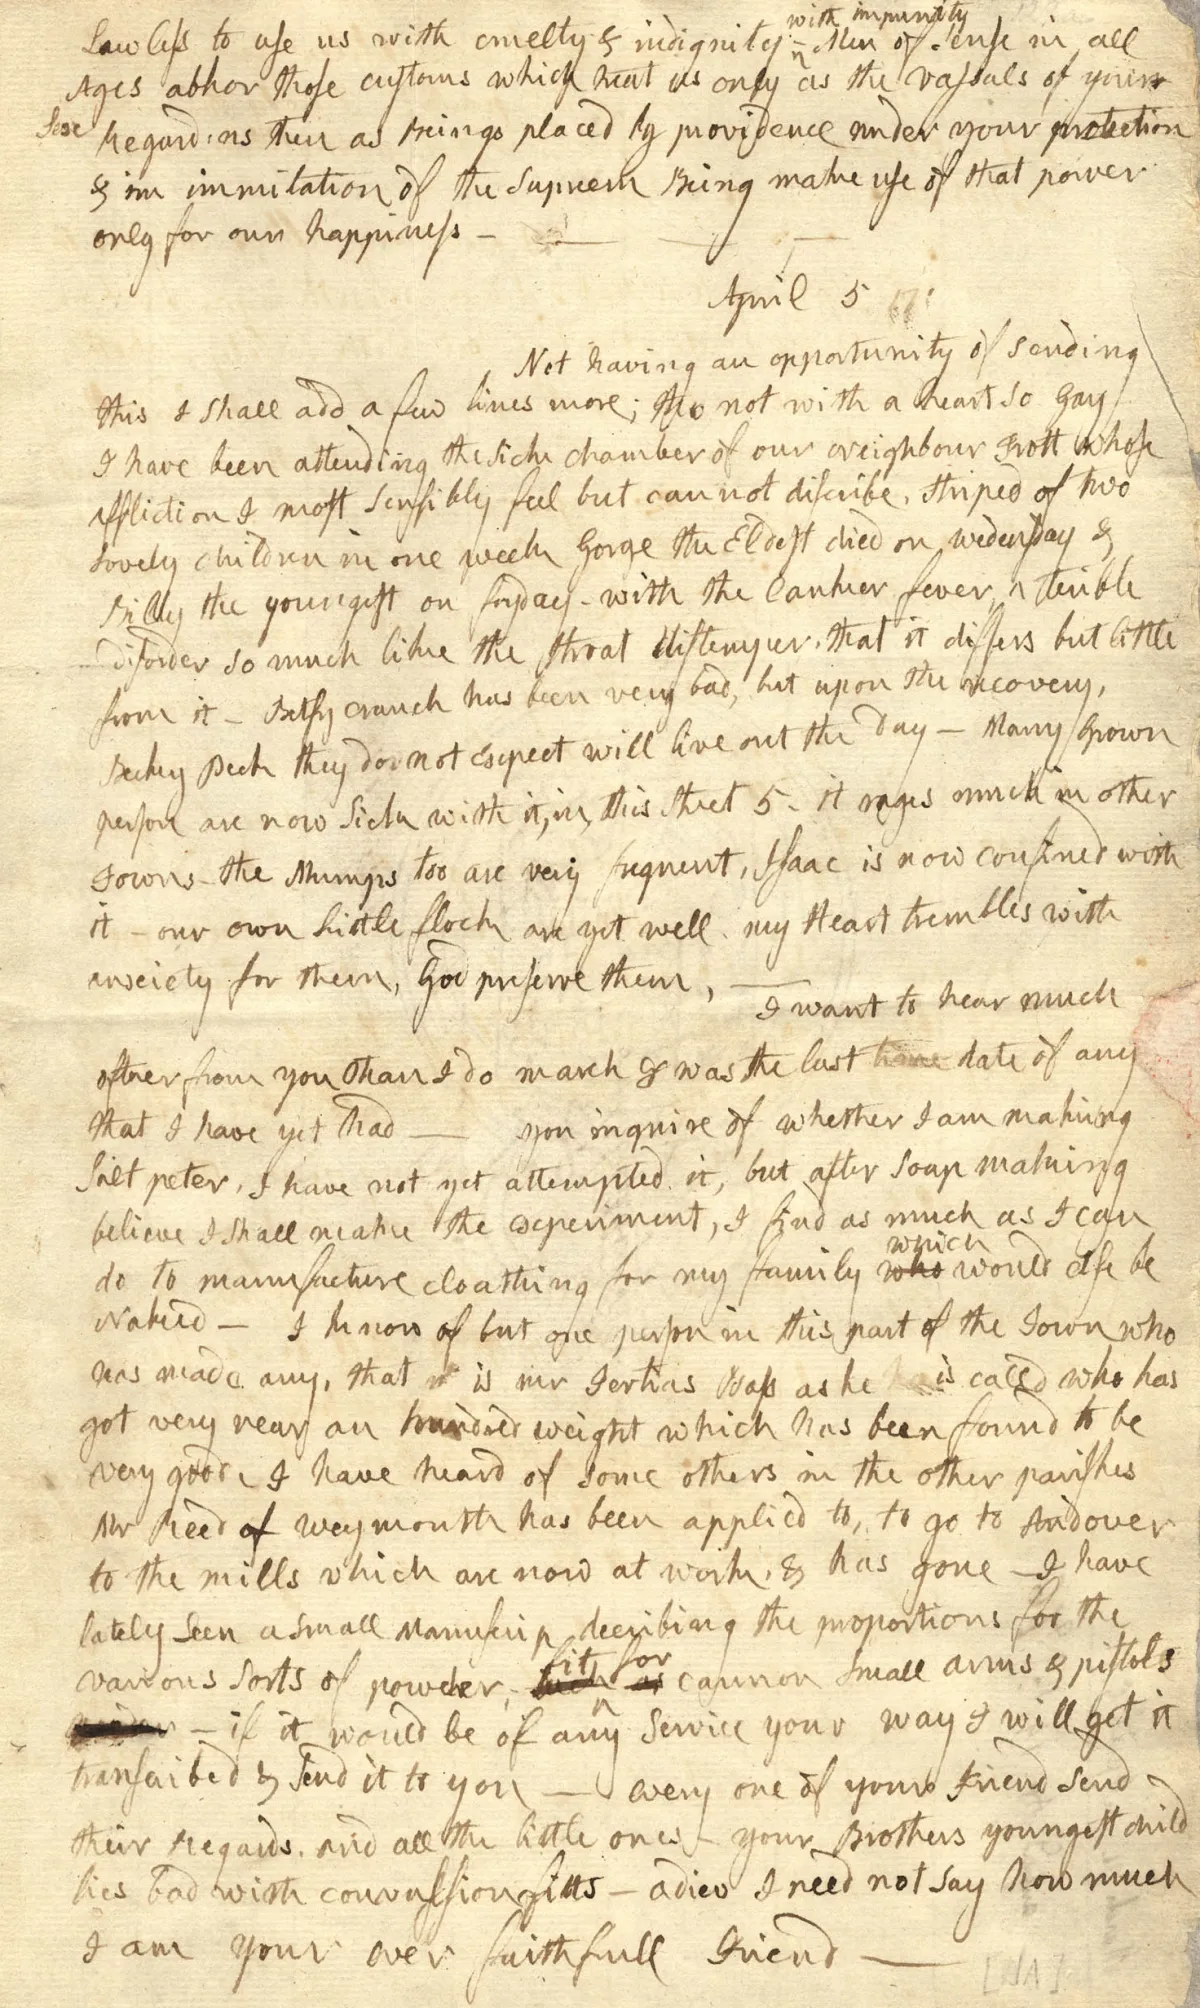 Lawless to use us with cruelty & indignity with impunity - Men of Sense in all
Ages abhor those customs which treat us only as the vassals of your
Sex
Regard us then as Beings placed by providence under your protection
& in immitation of the Supreem Being make use of that power
only for our happiness -
April 5
Not having an opportunity of sending
this I shall add a few lines more; tho not with a heart so Gay
I have been attending the sick chamber of our Neighbour Trott whose
affliction I most sensibly feel but cannot discribe, striped of two
lovely children in one week Gorge the Eldest died on wedensday &
Billy the youngest on fryday - with the Canker fever, a terible
disorder so much like the throat distemper, that it differs but little
from it - Betsy Cranch has been very bad, but upon the recovery,
Becky Peck they do not expect will live out the day - Many Grown
person are now Sick with it, in this street 5 - it rages much in other
Towns - the Mumps too are very frequent, Isaac is now confined with
it - our own Little flock are yet well. my Heart trembles with
anxiety for them, God preserve them,
I want to hear much
oftner from you than I do march 8 was the last date of any
that I have yet had - you inquire of whether I am making
Salt peter, I have not yet attempted it, but after Soap making
believe I shall make the experiment, I find as much as I can
do to manufacture cloathing for my family who which would else be
Naked - I know of but one person in this part of the Town who
has made any, that is mr Tertias Bass as he is called who has
got very near an hundred weight which has been found to be
very good, I have heard of some others in the other parishes
Mr Reed of Weymouth has been applied to, to go to Andover
to the mills which are now at work, & has gone - I have
lately seen a small Manuscrip decribing the proportions for the
various Sorts of powder, such as fit for cannon small arms & pistols
- if it would be of any Service your way I will get it
transcribed & Send it to you - every one of your Friend Send
their Regards. And all the little ones - your Brothers youngest child
lies bad with convulsion fitts - adieu I need not say how much
I am your ever faithfull Friend -